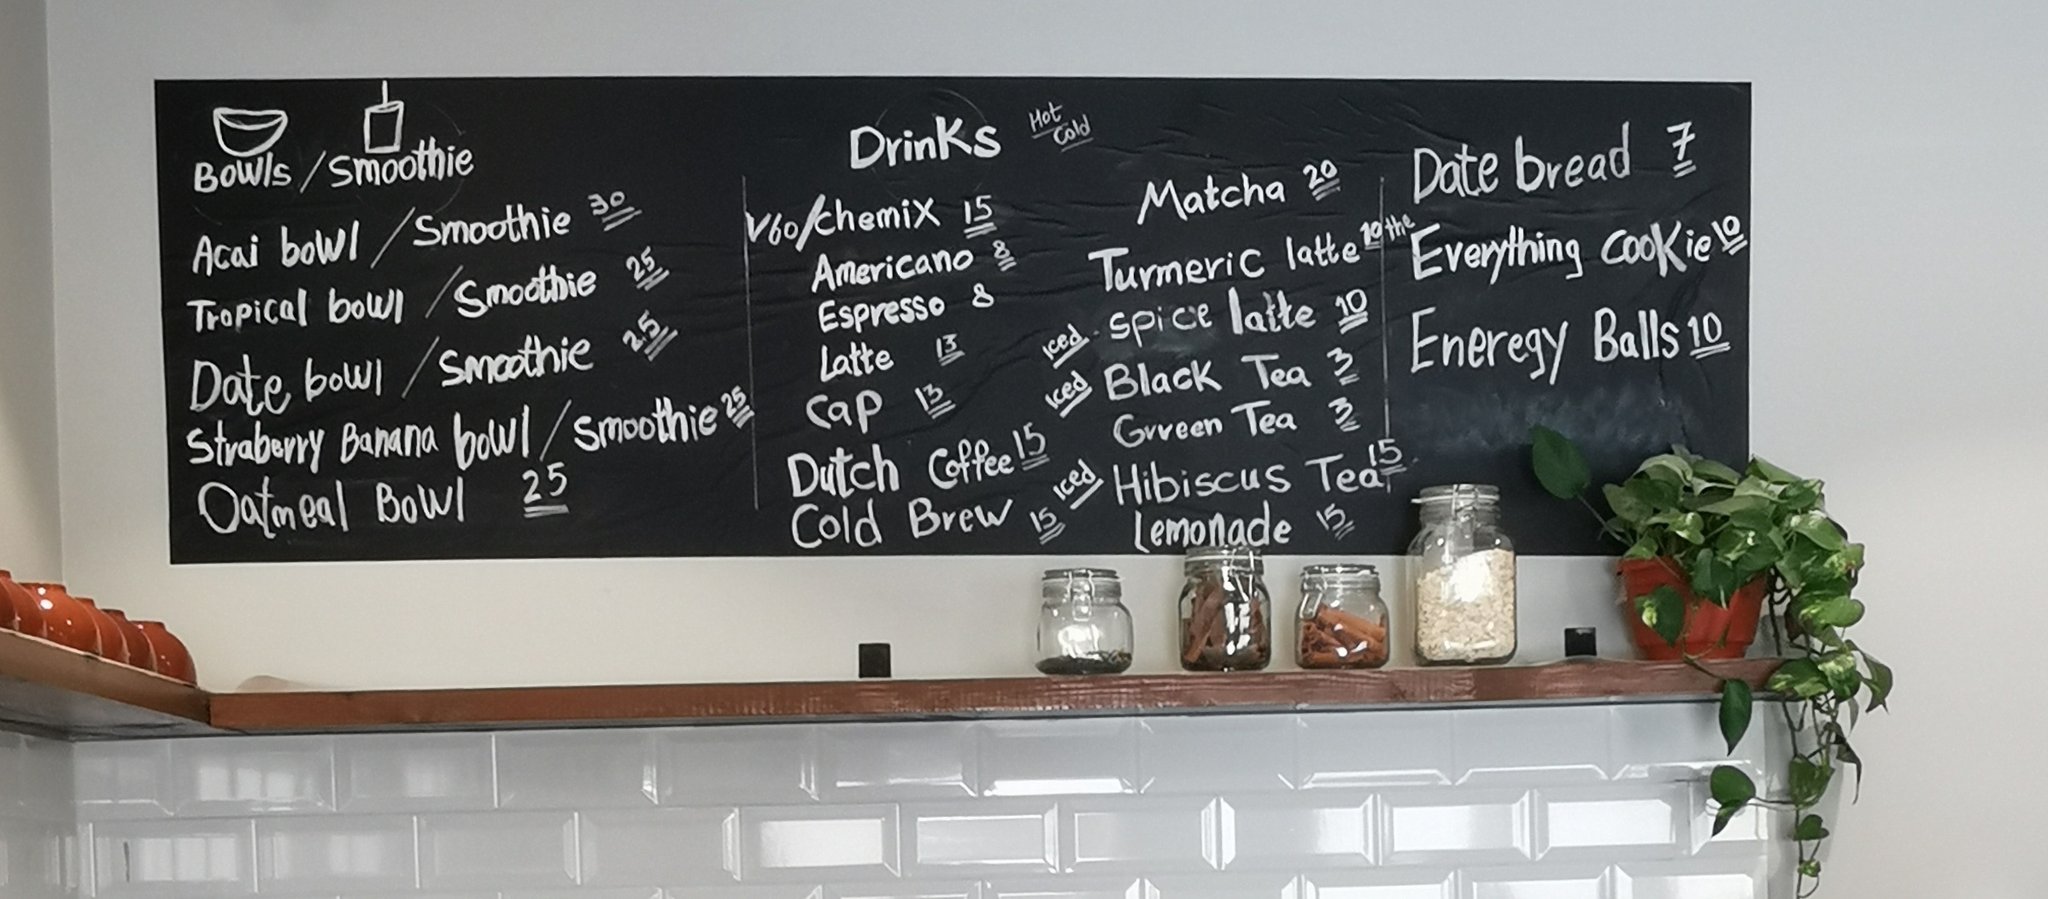 Bowls / Smoothie
Acai bowl / Smoothie 30
Tropical bowl / Smoothie 25
Date bowl / Smoothie 25
Straberry Banana bowl / Smoothie 25
Oatmeal Bowl 25
Drinks Hot Cold
V60/chemix 15
Americano 8
Espresso 8
Latte 13
Cap 13
Dutch Coffee 15
Cold Brew 15
Matcha 20
Turmeric latte 10
Iced spice latte 10
Iced Black Tea 3
Grreen Tea 3
Iced Hibiscus Tea 15
Lemonade 15
Date bread 7
the Everything cookie 10
Eneregy Balls 10